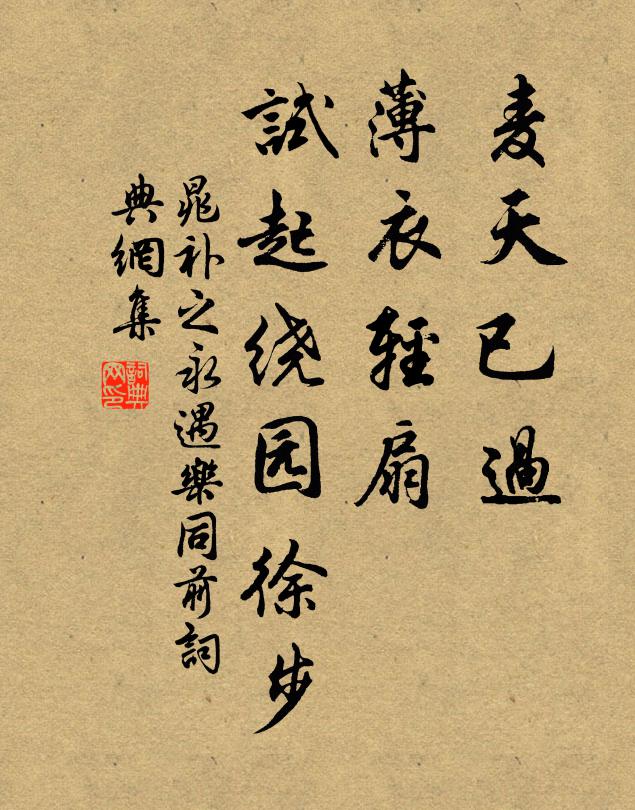 麦天已過
薄衣輕扇
試起绕园徐步
晁补之永遇樂同前詞
典網集
詞典
网印